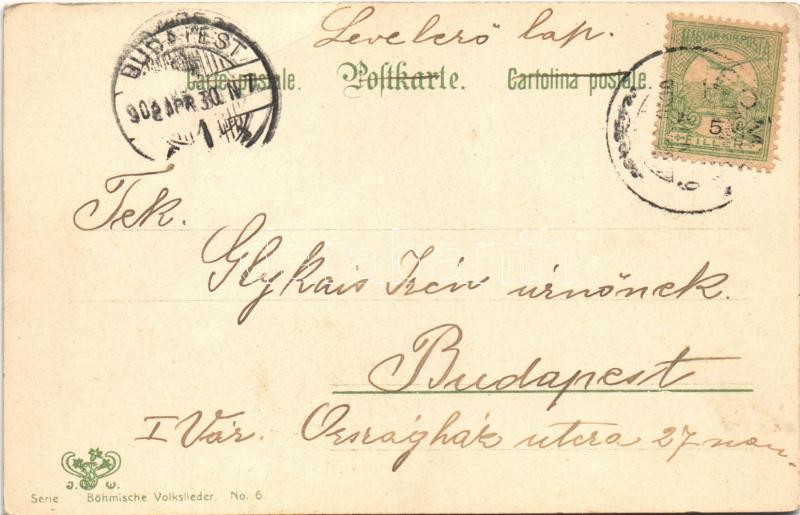 Levelező lap.
Carte postale. Postkarte. Cartolina postale.
BUDAPEST
902 APR 30. N 7
1
MAGYAR KIR. POSTA
5
FILLER
Tek.
Glykais Irén úrnőnek.
Budapest
I Vár. Országház utcza 27
J. W.
Serie Böhmische Volkslieder. No. 6.